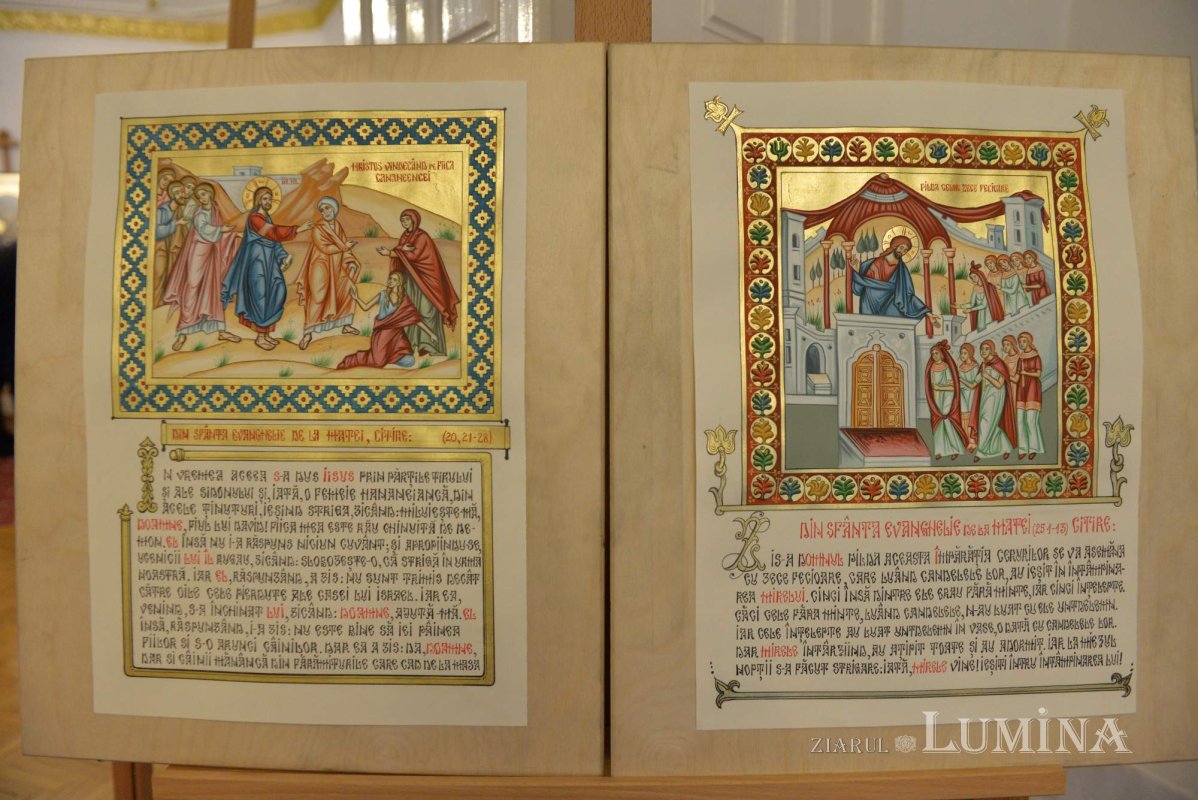 HRISTOS VINDECÂND PE FIICA
CANANEENCEI
DIN SFÂNTA EVANGHELIE DE LA MATEI, CITIRE: (20, 21-28)
ÎN VREMEA ACEEA S-A DUS IISUS PRIN PĂRȚILE TIRULUI
ȘI ALE SIDONULUI ȘI, IATĂ, O FEMEIE HANANEIANCĂ, DIN
ACELE ȚINUTURI, IEȘIND STRIGA, ZICÂND: MILUIEȘTE-MĂ,
DOAMNE, FIUL LUI DAVID! FIICA MEA ESTE RĂU CHINUITĂ DE DE-
MON. EL ÎNSĂ NU I-A RĂSPUNS NICIUN CUVÂNT; ȘI APROPIINDU-SE,
UCENICII LUI ÎL RUGAU, ZICÂND: SLOBOZEȘTE-O, CĂ STRIGĂ ÎN URMA
NOASTRĂ. IAR EL, RĂSPUNZÂND, A ZIS: NU SUNT TRIMIS DECÂT
CĂTRE OILE CELE PIERDUTE ALE CASEI LUI ISRAEL. IAR EA,
VENIND, S-A ÎNCHINAT LUI, ZICÂND: DOAMNE, AJUTĂ-MĂ. EL
ÎNSĂ, RĂSPUNZÂND, I-A ZIS: NU ESTE BINE SĂ IEI PÂINEA
FIILOR ȘI S-O ARUNCI CÂINILOR. DAR EA A ZIS: DA, DOAMNE,
DAR ȘI CÂINII MĂNÂNCĂ DIN FĂRÂMITURILE CARE CAD DE LA MASA
PILDA CELOR ZECE FECIOARE
DIN SFÂNTA EVANGHELIE DE LA MATEI (25 1-13) CITIRE:
ZIS-A DOMNUL PILDA ACEASTA ÎMPĂRĂȚIA CERURILOR SE VA ASEMĂNA
CU ZECE FECIOARE, CARE LUÂND CANDELELE LOR, AU IEȘIT ÎN ÎNTÂMPINA-
REA MIRELUI. CINCI ÎNSĂ DINTRE ELE ERAU FĂRĂ MINTE, IAR CINCI ÎNȚELEPTE.
CĂCI CELE FĂRĂ MINTE, LUÂND CANDELELE, N-AU LUAT CU ELE UNTDELEMN.
IAR CELE ÎNȚELEPTE AU LUAT UNTDELEMN ÎN VASE, O DATĂ CU CANDELELE LOR.
DAR MIRELE ÎNTÂRZIIND, AU AȚIPIT TOATE ȘI AU ADORMIT. IAR LA MIEZUL
NOPȚII S-A FĂCUT STRIGARE: IATĂ, MIRELE VINE! IEȘIȚI ÎNTRU ÎNTÂMPINAREA LUI!
ZIARUL LUMINA